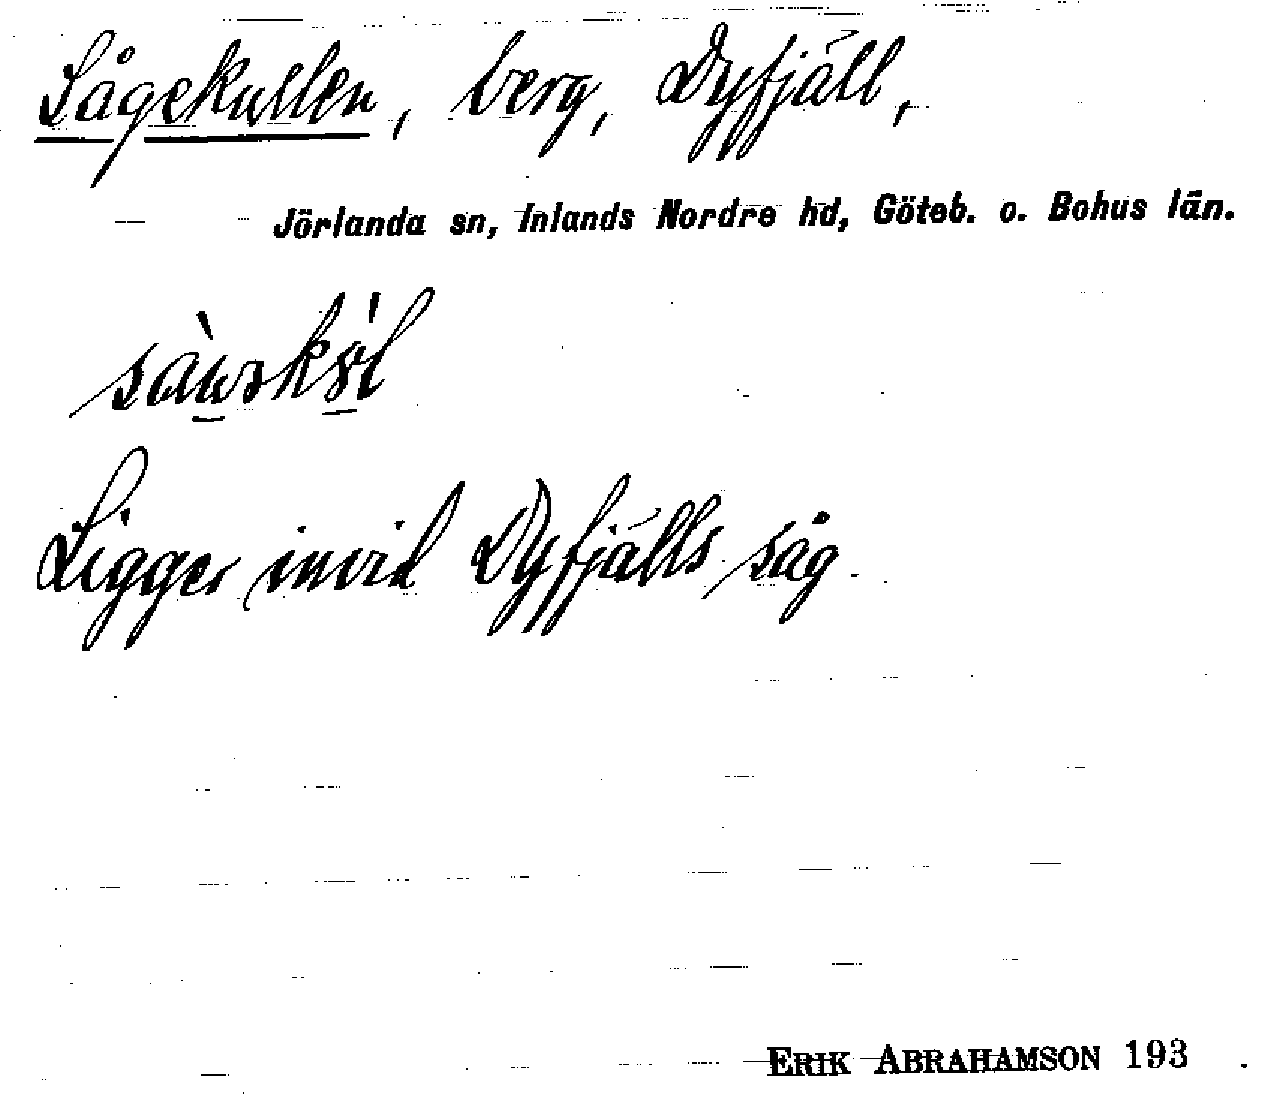 Sågekullen, berg, Dyfjäll,
Jörlanda sn, Inlands Nordre hd, Göteb. o. Bohus län.
Ligger invid Dyfjälls såg.
ERIK ABRAHAMSON 193